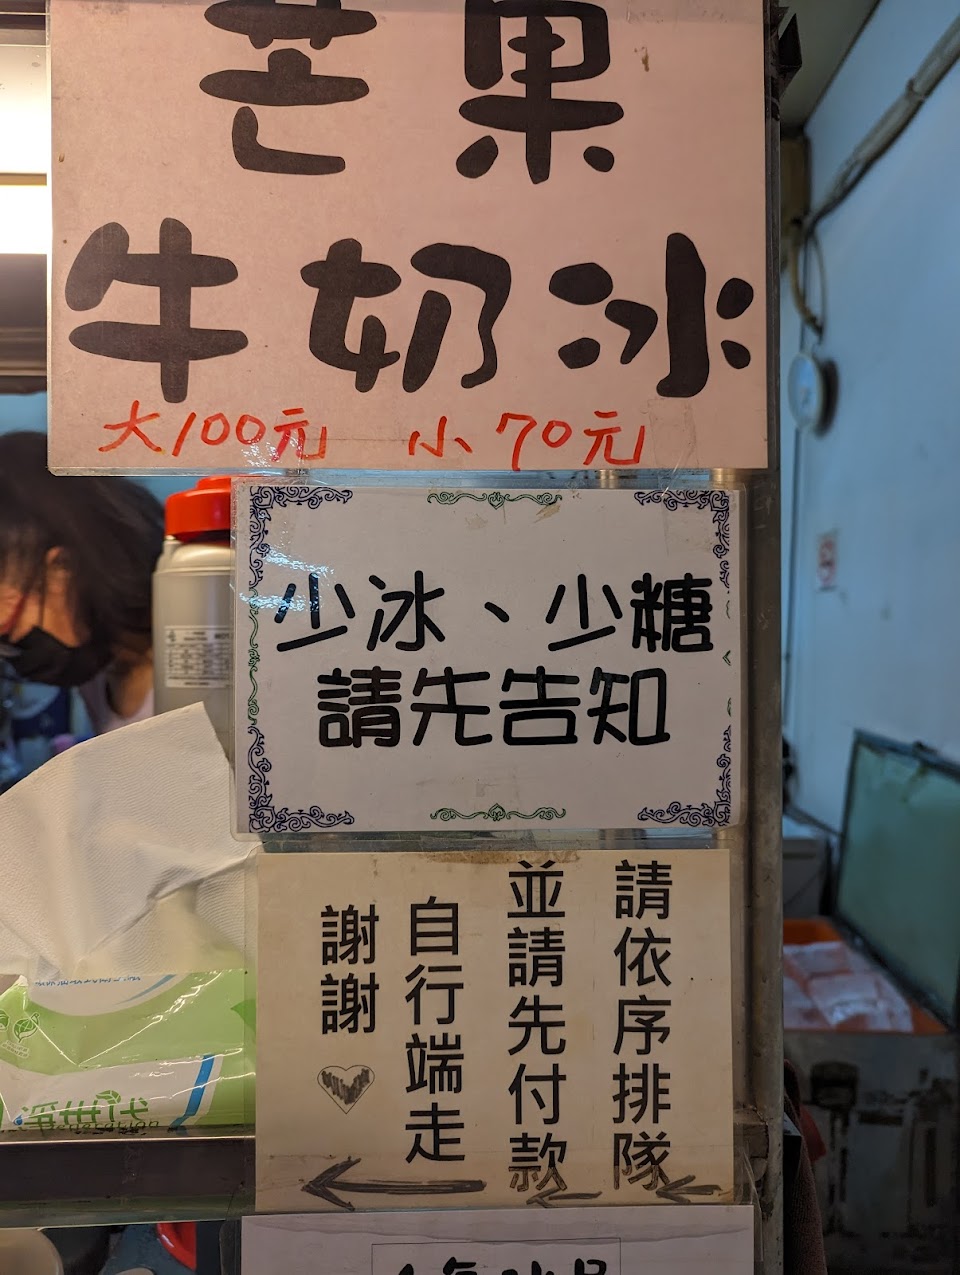 芒果
牛奶冰
大100元 小70元
少冰、少糖
請先告知
請依序排隊
並請先付款
自行端走
謝謝